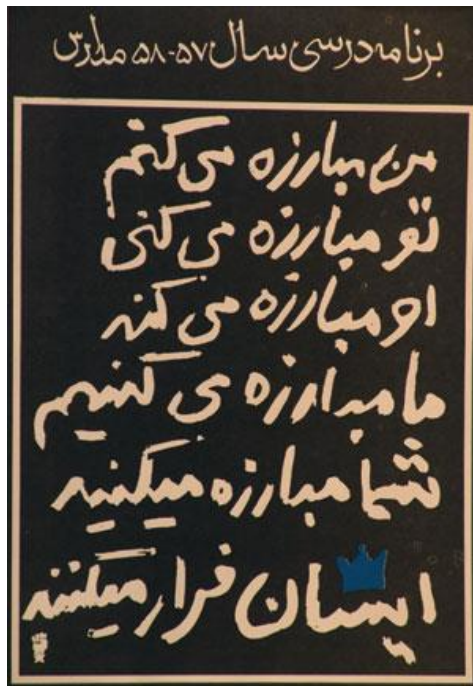 برنامه درسی سال ۵۷-۵۸ مدارس
من مبارزه می کنم
تو مبارزه می کنی
او مبارزه می کند
ما مبارزه می کنیم
شما مبارزه میکنید
ایشان فرار میکنند